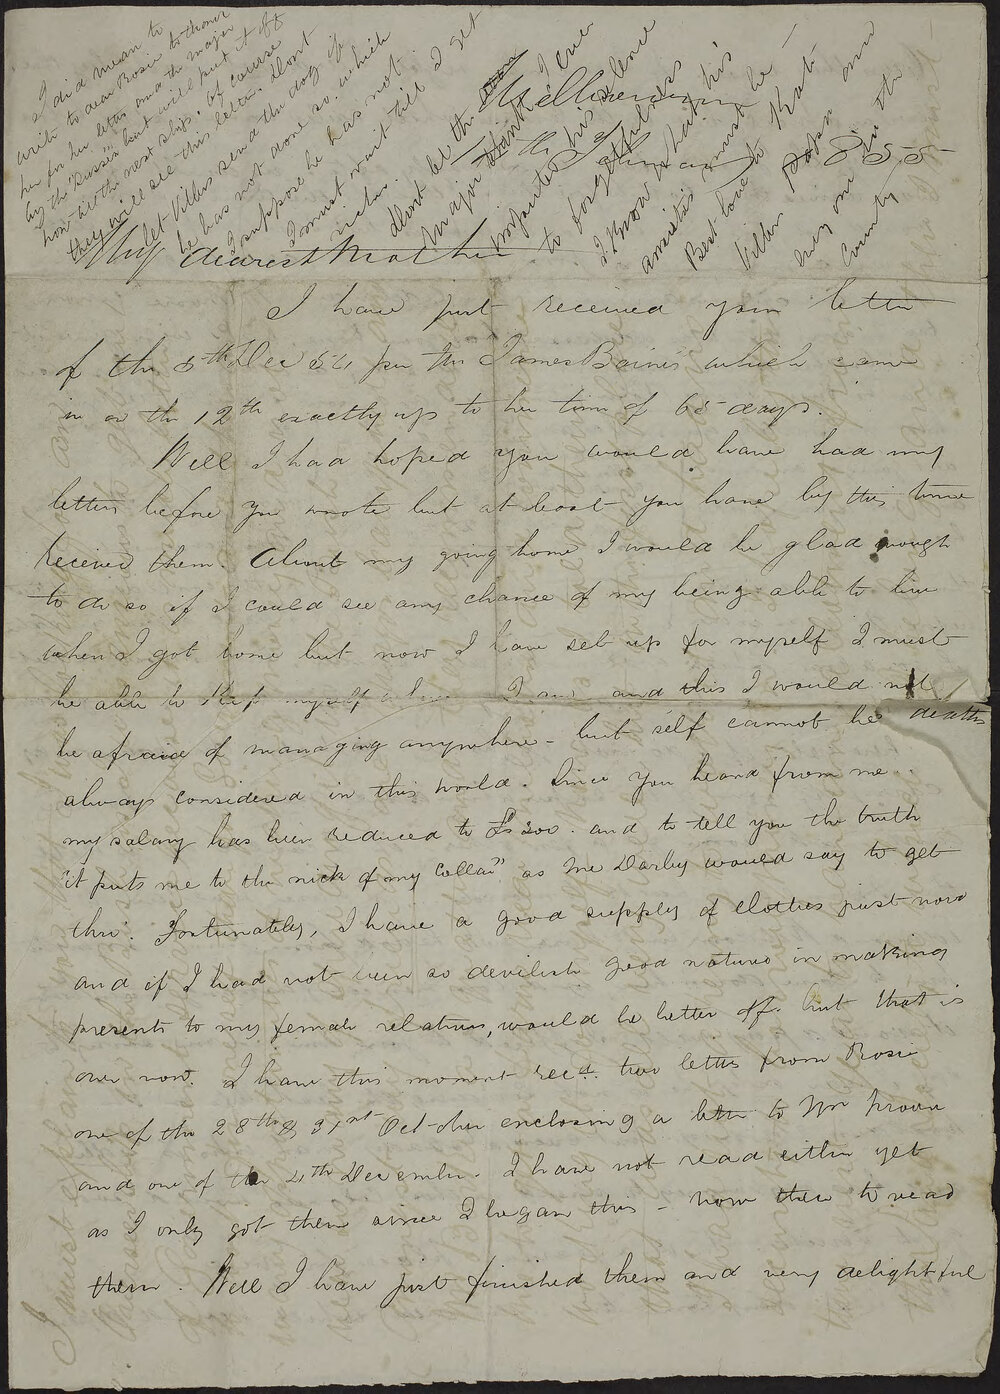 Melbourne
14th February 1855
My dearest Mother
I have just received your letter
of the 5th Dec 54 per the James Baines which came
in on the 12th exactly up to her time of 65 days.
Well I had hoped you would have had my
letters before you wrote but at least you have by this time
received them. About my going home I would be glad enough
to do so if I could see any chance of my being able to live
when I got home but now I have set up for myself I must
be able to keep myself and this I would not
be afraid of managing anywhere - but self cannot be
always considered in this world. Since you heard from me
my salary has been reduced to £300. and to tell you the truth
"it puts me to the nick of my Collar" as Me Darby would say to get
thro. Fortunately, I have a good supply of clothes just now
and if I had not been so devilish good natured in making
presents to my female relatives, would be better off. but that is
over now. I have this moment recd. two letters from Rosie
one of the 28th & 31st October enclosing a letter to Wm
and one of the 4th December. I have not read either yet
as I only got them since I began this - now then to read
them. Well I have just finished them and very delightful
deaths
I did mean to
write to dear Rosie to thank
her for her letter and the major
by the "Russia" but will put it off
now till the next ship. Of course
they will see this letter. Dont
let Villiers send the dog if
he has not done so, which
I suppose he has not.
I must wait till I get
richer.
Dont let the
Major think I ever
imputed his silence
to forgetfulness
I know what his
anxieties must be -
Best love to Kat
Villiers Papa and
every one in the
County